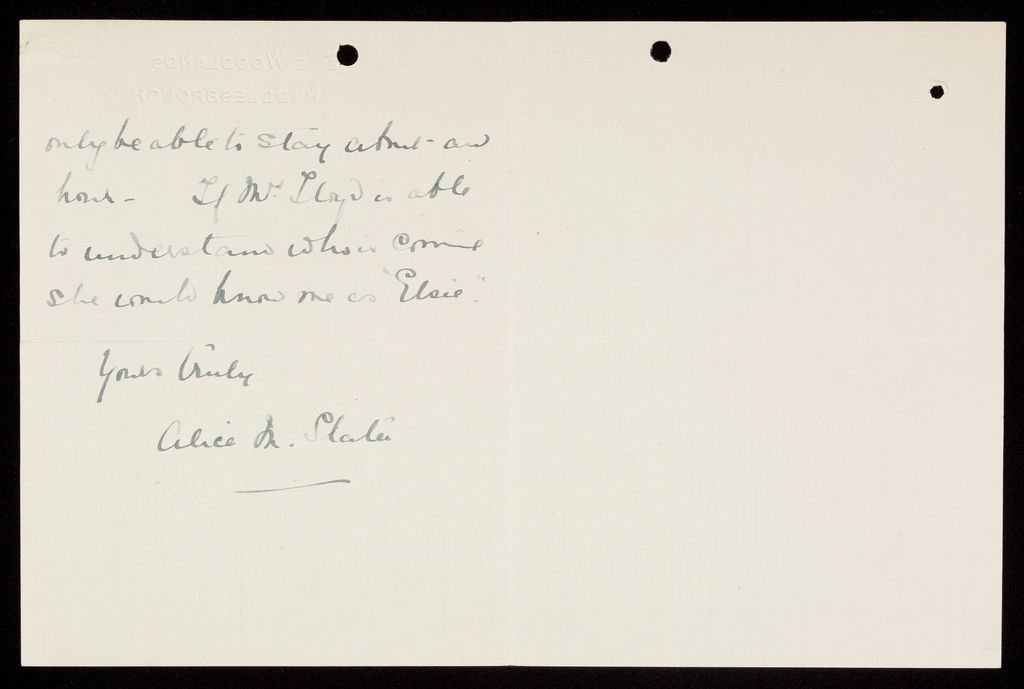 THE WOODLANDS.
MIDDLESBROUGH.
only be able to stay about an
hour - If Mrs Lloyd is able
to understand who is coming
she would know me as "Elsie".
Yours truly
Alice M. Slater